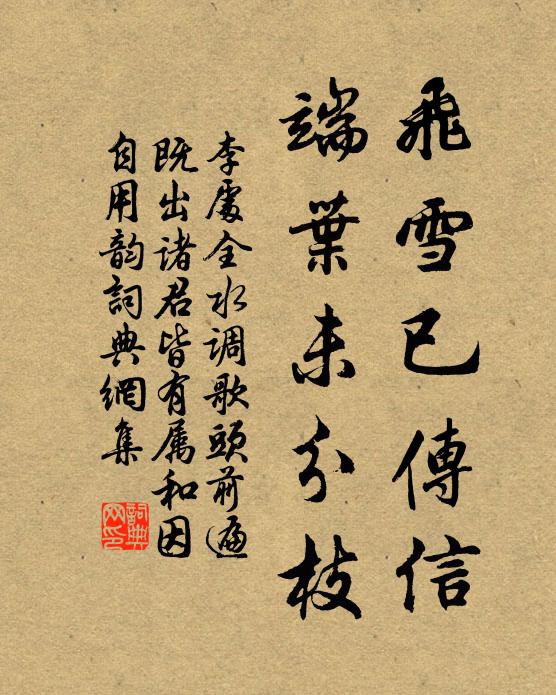 飛雪已傳信
端葉未分枝
李處全水调歌頭前遍
既出諸君皆有属和因
自用韵詞典網集
詞典網印